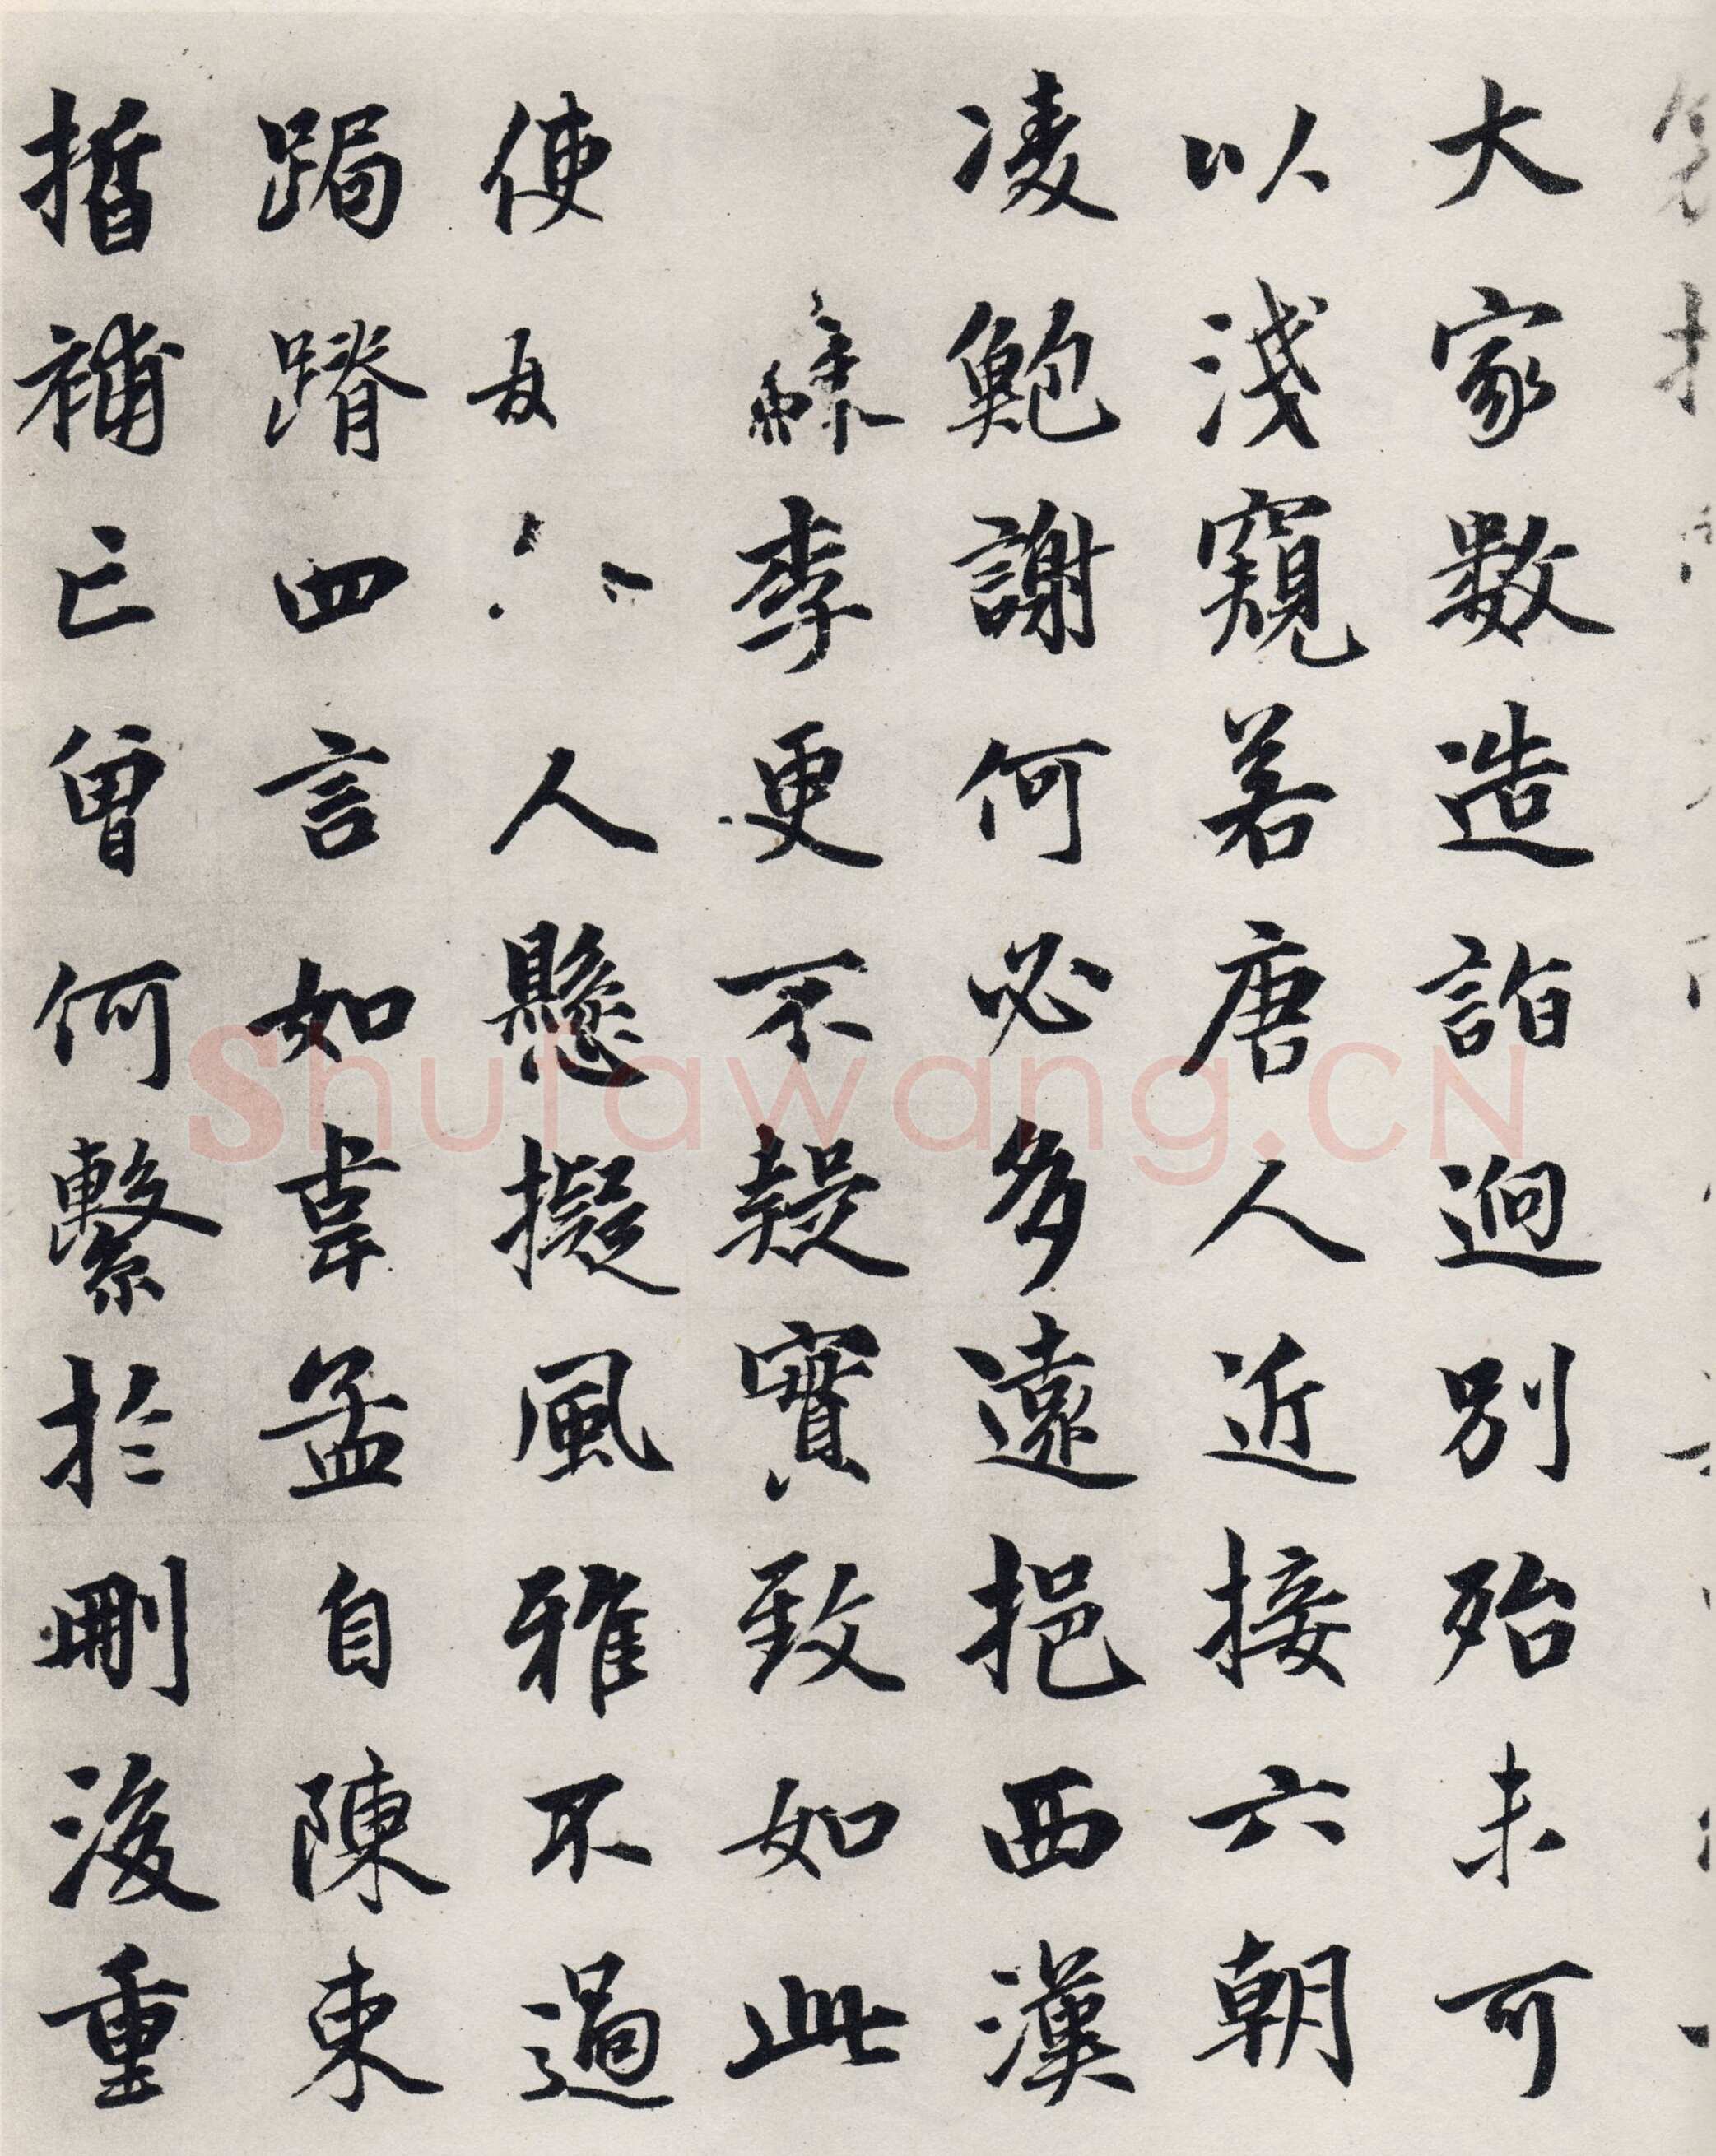 大家數造詣迥別殆未可
以淺窺若唐人近接六朝
凌鮑謝何必多遠挹西漢
李更不疑實致如此
使 人懸擬風雅不過
跼蹐四言如韋孟自陳東
晢補亡曾何繫於刪後重
Shufawang.CN